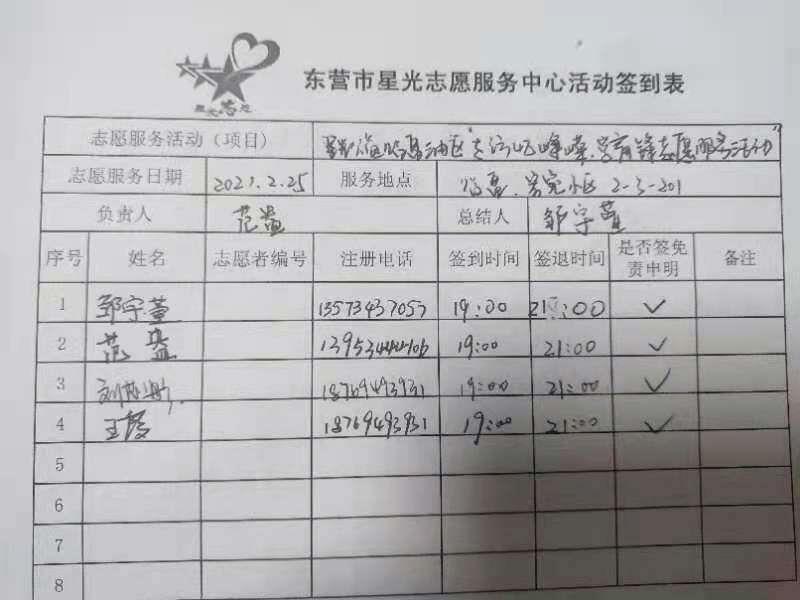 东营市星光志愿服务中心活动签到表
志愿服务活动（项目） 志愿服务活动"
志愿服务日期 2021.2.25 服务地点 小区 2-3-201
负责人 范 总结人 邹宇萱
序号 姓名 志愿者编号 注册电话 签到时间 签退时间 是否签免责申明 备注
1 邹宇萱 13573437057 19:00 21:00 ✓
2 范 19:00 21:00 ✓
3 刘 18769493931 19:00 21:00 ✓
4 王霞 18769493931 19:00 21:00 ✓
5
6
7
8